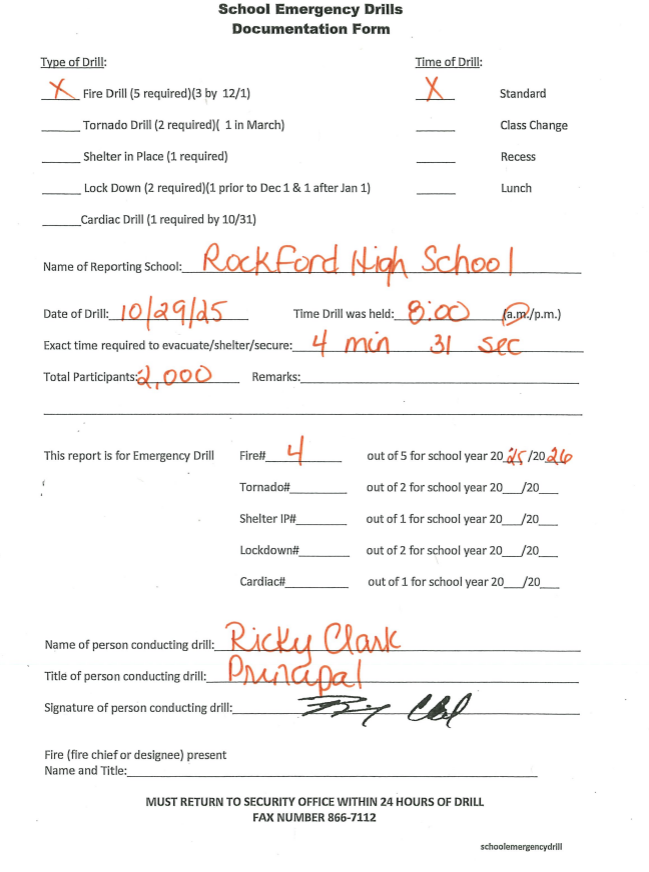 School Emergency Drills
Documentation Form
Type of Drill: Time of Drill:
X Fire Drill (5 required)(3 by 12/1) X Standard
______ Tornado Drill (2 required)( 1 in March) ______ Class Change
______ Shelter in Place (1 required) ______ Recess
______ Lock Down (2 required)(1 prior to Dec 1 & 1 after Jan 1) ______ Lunch
______Cardiac Drill (1 required by 10/31)
Name of Reporting School: Rockford High School
Date of Drill: 10/29/25 Time Drill was held: 8:00 (a.m./p.m.)
Exact time required to evacuate/shelter/secure: 4 min 31 sec
Total Participants: 2,000 Remarks:
This report is for Emergency Drill Fire# 4 out of 5 for school year 20 25 /20 26
Tornado#________ out of 2 for school year 20___/20___
Shelter IP#________ out of 1 for school year 20___/20___
Lockdown#________ out of 2 for school year 20___/20___
Cardiac#________ out of 1 for school year 20___/20___
Name of person conducting drill: Ricky Clark
Title of person conducting drill: Principal
Signature of person conducting drill:
Fire (fire chief or designee) present
Name and Title:
MUST RETURN TO SECURITY OFFICE WITHIN 24 HOURS OF DRILL
FAX NUMBER 866-7112
schoolemergencydrill